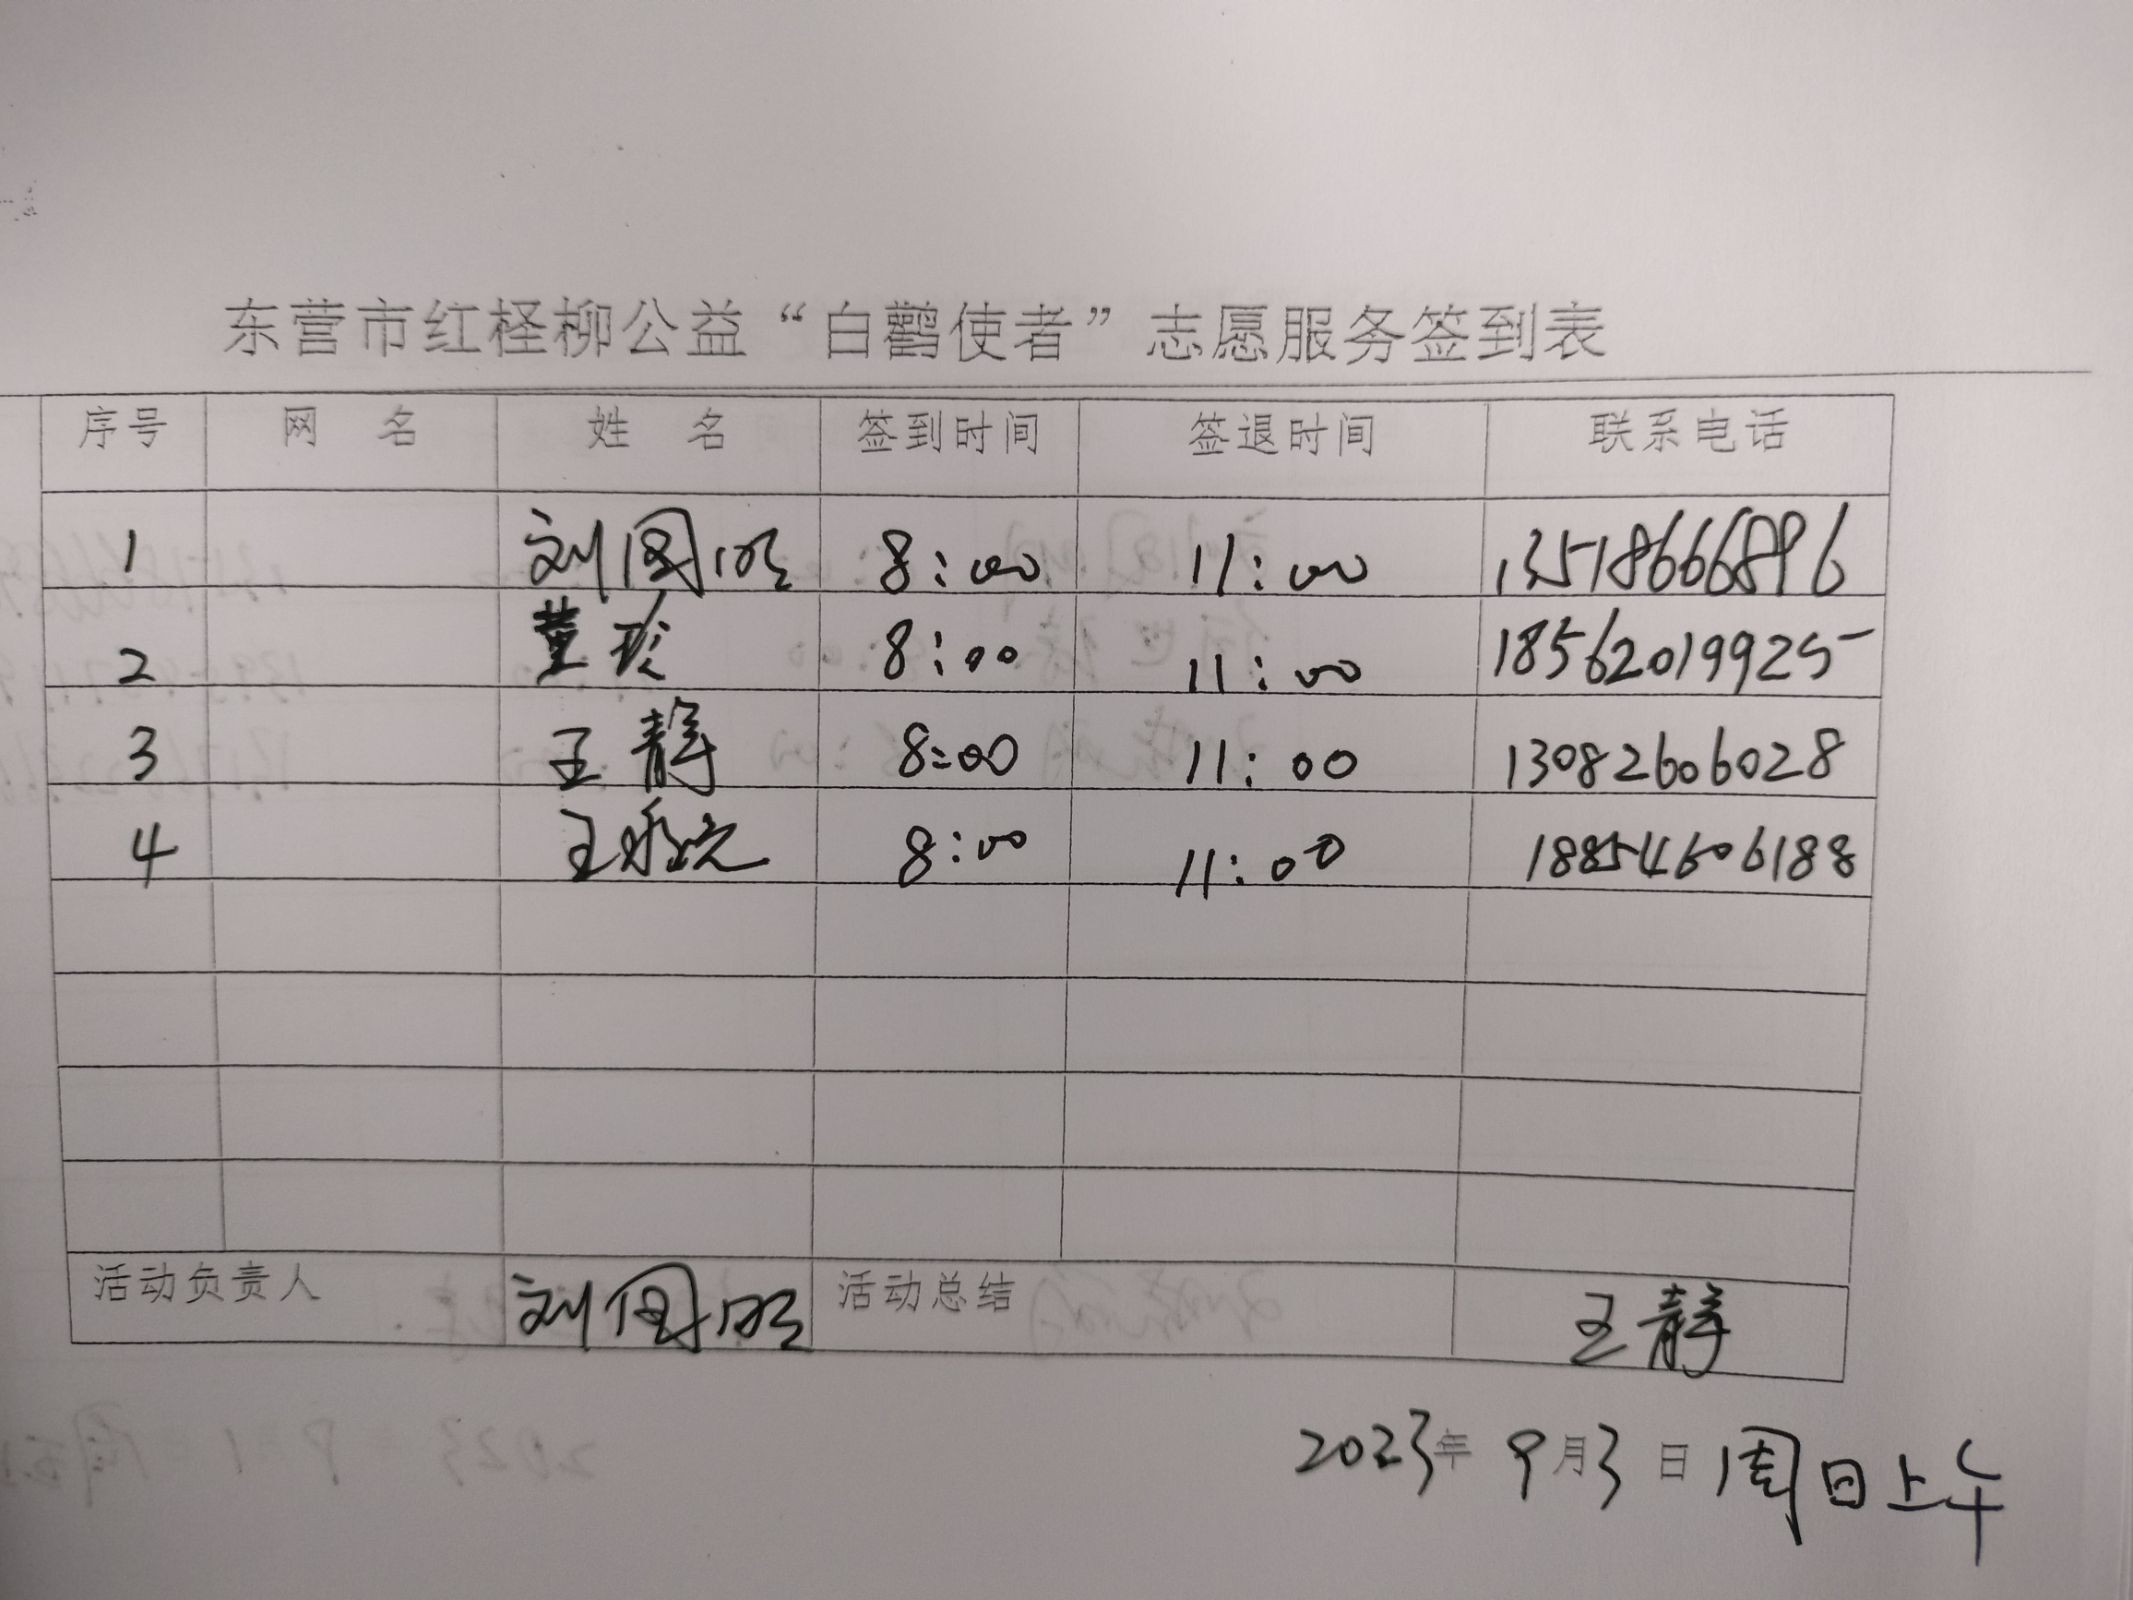 东营市红柽柳公益“白鹳使者”志愿服务签到表
序号 网 名 姓 名 签到时间 签退时间 联系电话
1 刘国明 8:00 11:00 13518666896
2 董珍 8:00 11:00 18562019925
3 王静 8:00 11:00 13082606028
4 王永元 8:00 11:00 18854606188
活动负责人 刘国明 活动总结 王静
2023年 9月3日 周日上午